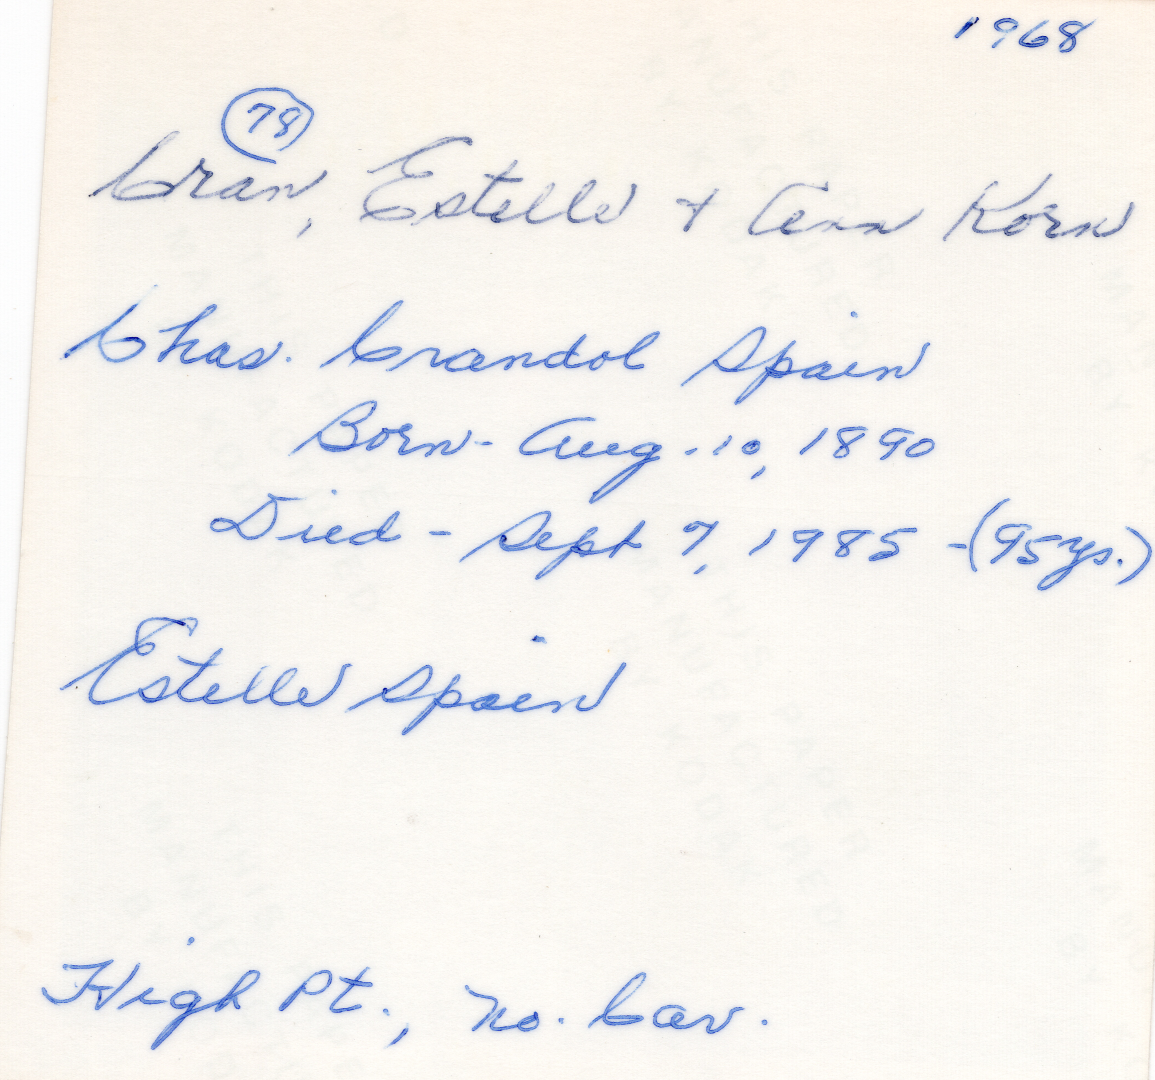 1968
78
Cran, Estelle + Ann Korn
Chas. Crandol Spain
Born - Aug. 10, 1890
Died - Sept 7, 1985 - (95 ys.)
Estelle Spain
High Pt., No. Car.